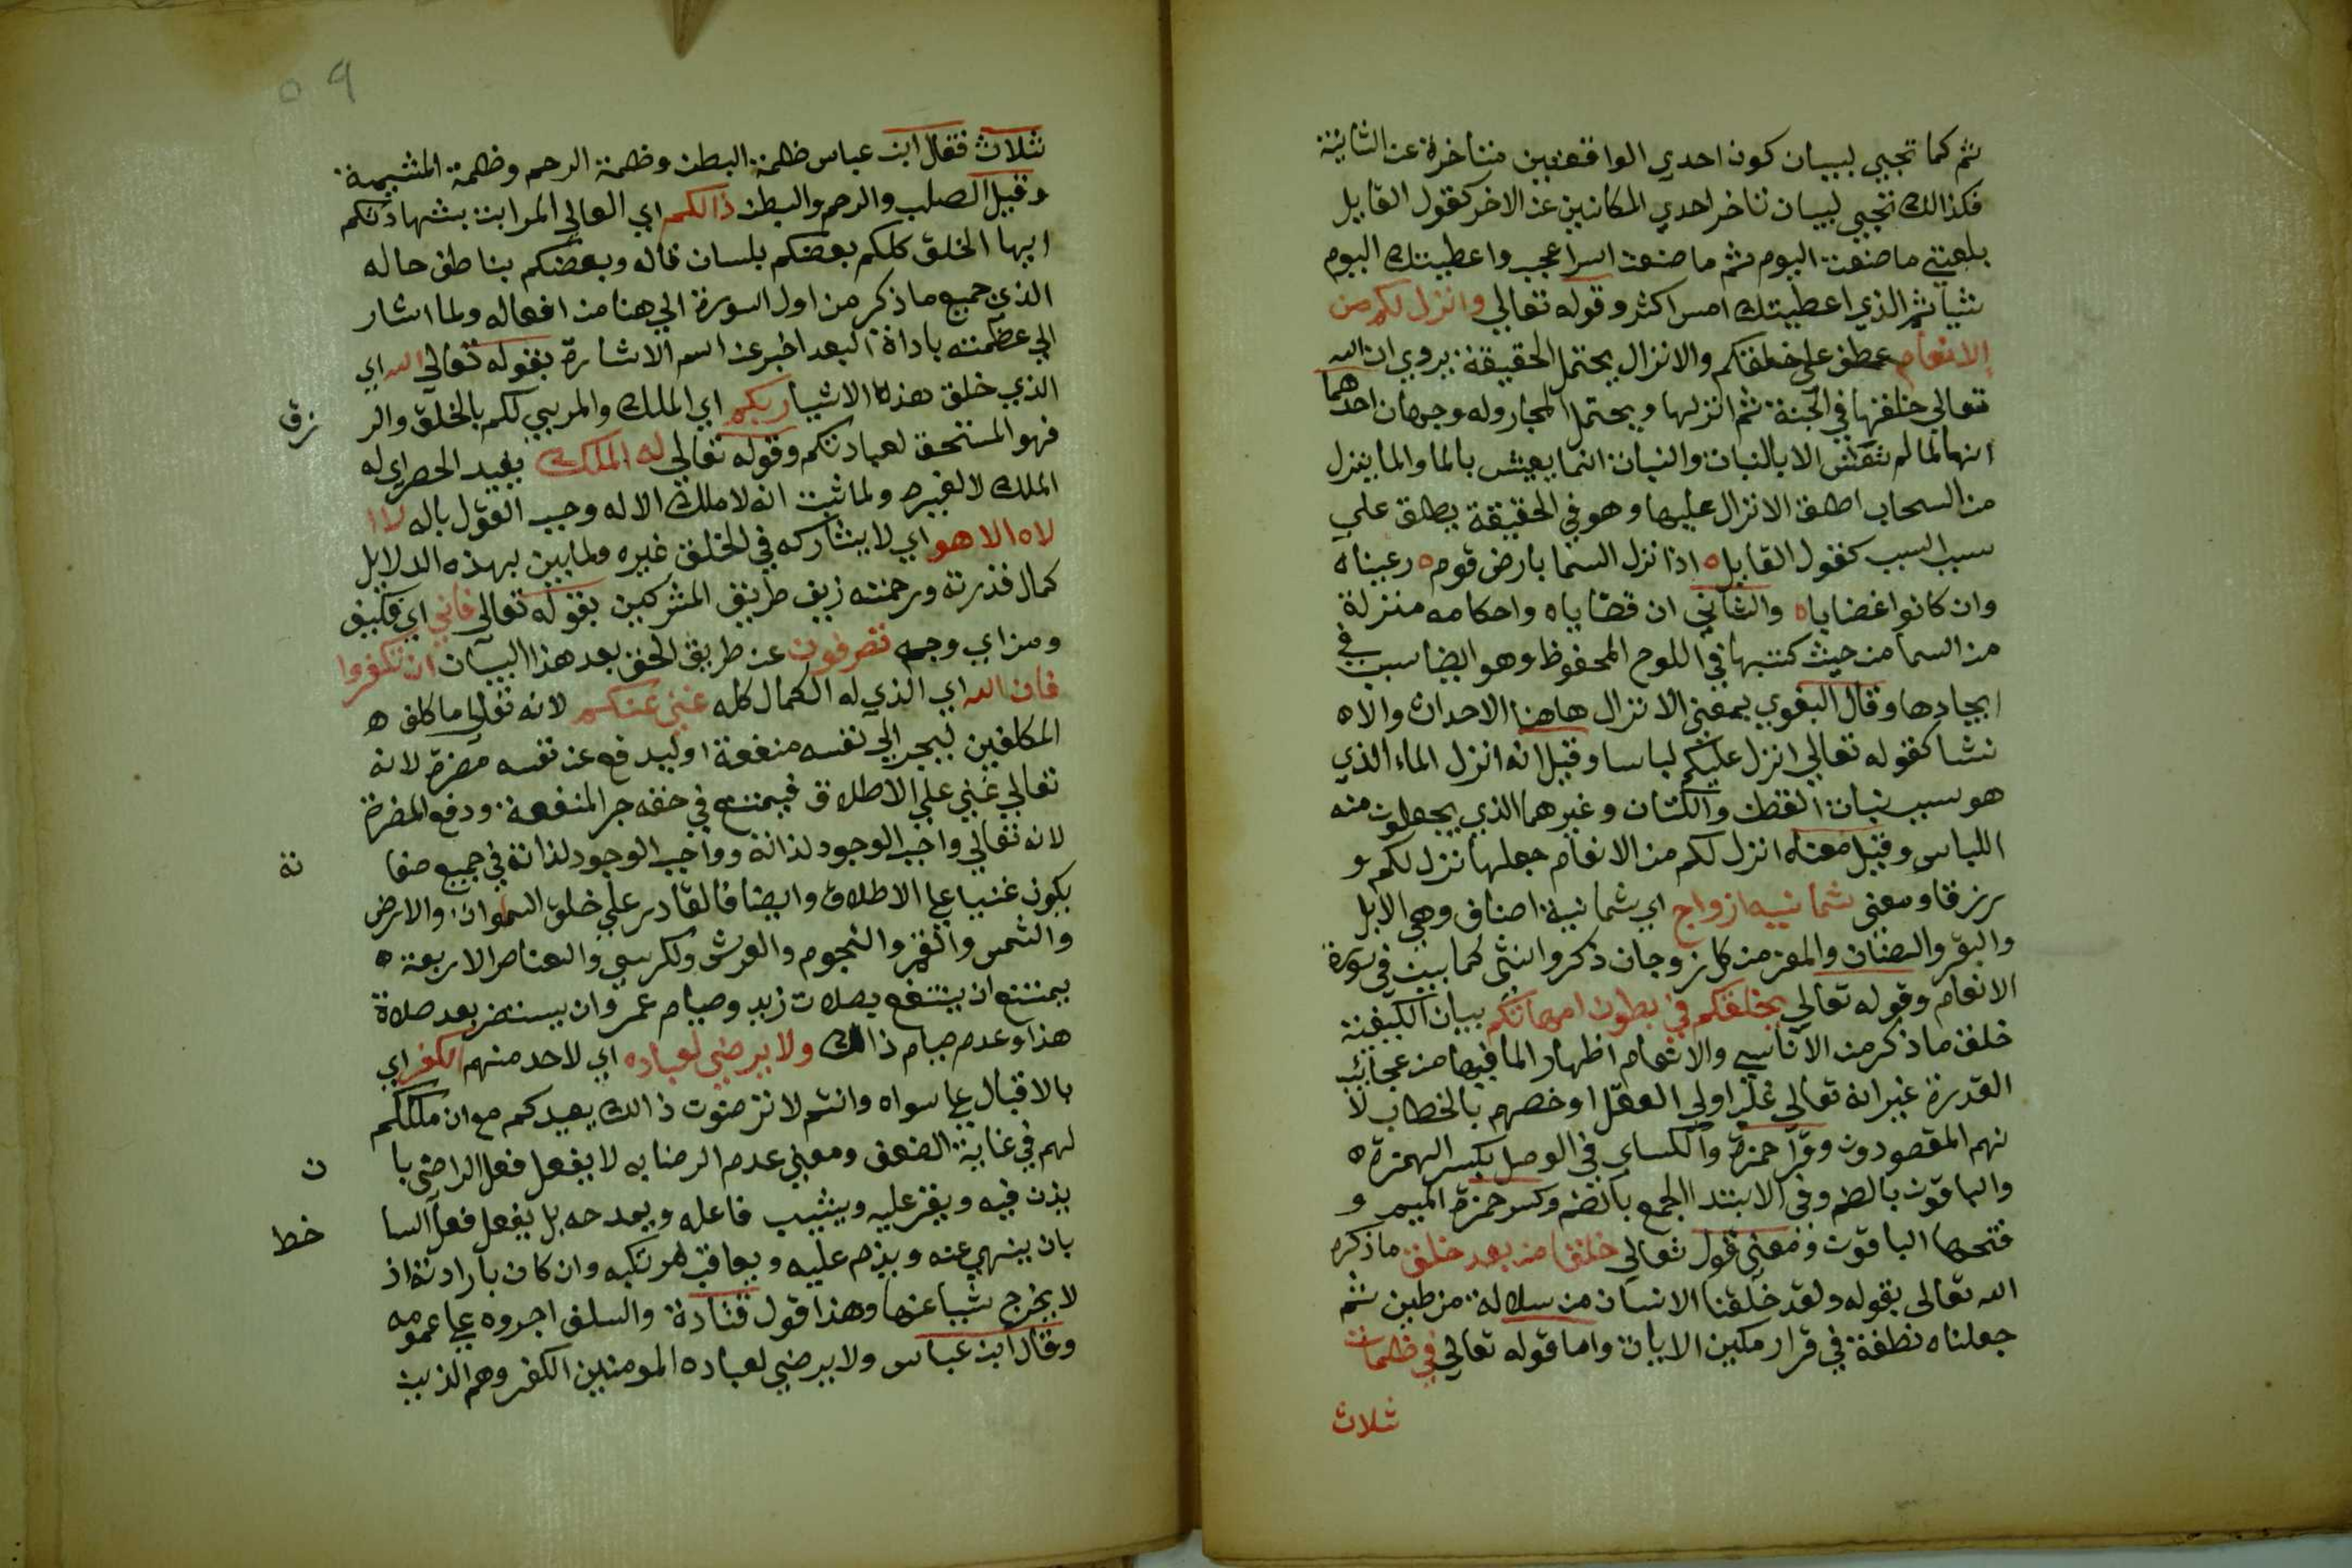 ثم كما تجيي لبيان كون احدي الواقعتين متاخرة عن الثانية
فكذالك تجيي لبيان تاخر احدي المكانين عن الاخر كقول القايل
بلغني ما صنعت اليوم ثم ما صنعت اسرا عجب واعطيتك اليوم
شيا ثم الذي اعطيتك امس اكثر وقوله تعالي وانزل لكم من
الانعام عطف علي خلقكم والانزال يحتمل الحقيقة يروي ان الله
تعالي خلقها في الجنة ثم انزلها ويحتمل المجاز وله وجهان احدهما
انها لما لم تعش الا بالنبات والنبات انما يعيش بالما والما ينزل
من السحاب اطلق الانزال عليها وهو في الحقيقة يطلق علي
سبب السبب كقول القايل ه اذا نزل السما بارض قوم ه رعيناه
وان كانوا غضاباه والثاني ان قضاياه واحكامه منزلة
من السما من حيث كتبها في اللوح المحفوظ وهو ايضا سبب في
ايجادها وقال البغوي يمعني الانزال هاهنا الاحداث والاه
نشا كقوله تعالي انزل عليكم لباسا وقيل انه انزل الماء الذي
هو سبب نبات القطن والكتان وغيرهما الذي يجعلون منه
اللباس وقيل معناه انزل لكم من الانعام جعلها نزل لكم و
رزقا ومعني ثمانيه ازواج اي ثمانية اصناف وهي الابل
والبقر والضان والمعز من كل زوجان ذكر وانثي كما بين في سورة
الانعام وقوله تعالي يخلقكم في بطون امهاتكم بيان الكيفية
خلق ما ذكر من الاناسي والانعام اظهار الما فيها من عجائب
القدرة غير انه تعالي غلب اولي العقل او خصهم بالخطاب لا
نهم المقصودون وقرا حمزة والكساي في الوصل بكسر الهمزة ه
والباقون بالضم وفي الابتدا الجمع بالضم وكسر حمزة الميم و
فتحها الباقون ومعني قول تعالي خلقا من بعد خلق ما ذكره
الله تعالي بقوله ولقد خلقنا الانسان من سلالة من طين ثم
جعلناه نطفة في قرار مكين الايات واما قوله تعالي في ظلمات
ثلاث
٥٩
ثلاث فقال ابن عباس ظلمة البطن وظلمة الرحم وظلمة المشيمة
وقيل الصلب والرحم والبطن ذالكم اي العالي المرابت بشهادتكم
ايها الخلق كلكم بعضكم بلسان قاله وبعضكم بناطق حاله
الذي جميع ما ذكر من اول السورة الي هنا من افعاله ولما اشار
الي عظمته باداة البعد اخبر عن اسم الاشارة بقوله تعالي الله اي
الذي خلق هذه الاشيا ربكم اي الملك والمربي لكم بالخلق والر
زق
فهو المستحق لعبادتكم وقوله تعالي له الملك يفيد الحصر اي له
الملك لا لغيره ولما ثبت انه لا ملك الا له وجب القول باله لا ا
لاه الا هو اي لا يشاركه في الخلق غيره ولما بين بهذه الدلايل
كمال قدرته ورحمته زيف طريق المشركين بقوله تعالي فاني اي فكيف
ومن اي وجه تصرفون عن طريق الحق بعد هذا البيان ان تكفروا
فان الله اي الذي له الكمال كله غني عنكم لانه تعالي ما كلف ه
المكلفين ليجر الي نفسه منفعة او ليدفع عن نفسه مضرة لانه
تعالي غني علي الاطلاق فيمتنع في حقه جر المنفعة ودفع المضرة
لانه تعالي واجب الوجود لذاته وواجب الوجود لذاته في جميع صفا
ته
يكون غنيا علي الاطلاق وايضا فالقادر علي خلق السموات والارض
والشمس والقمر والنجوم والعرش ولكرسي والعناصر الاربعة ه
يمتنع ان ينتفع بصلات زيد وصيام عمر وان يستضر بعد صلاة
هذا وعدم صيام ذالك ولا يرضي لعباده اي لاحد منهم الكفر اي
بالاقبال علي سواه وانتم لا ترضون ذالك يعيدكم مع ان ملككم
لهم في غاية الضعف ومعني عدم الرضا به لا يفعل فعل الراضي با
ن
يذن فيه ويقر عليه ويثيب فاعله ويمدحه بل يفعل فعل السا
خط
بان ينهي عنه ويذم عليه ويعاقب مرتكبه وان كان بارادته اذ
لا يخرج شيا عنها وهذا قول قتادة والسلف اجروه علي عمومه
وقال ابن عباس ولا يرضي لعباده المومنين الكفر وهم الذين